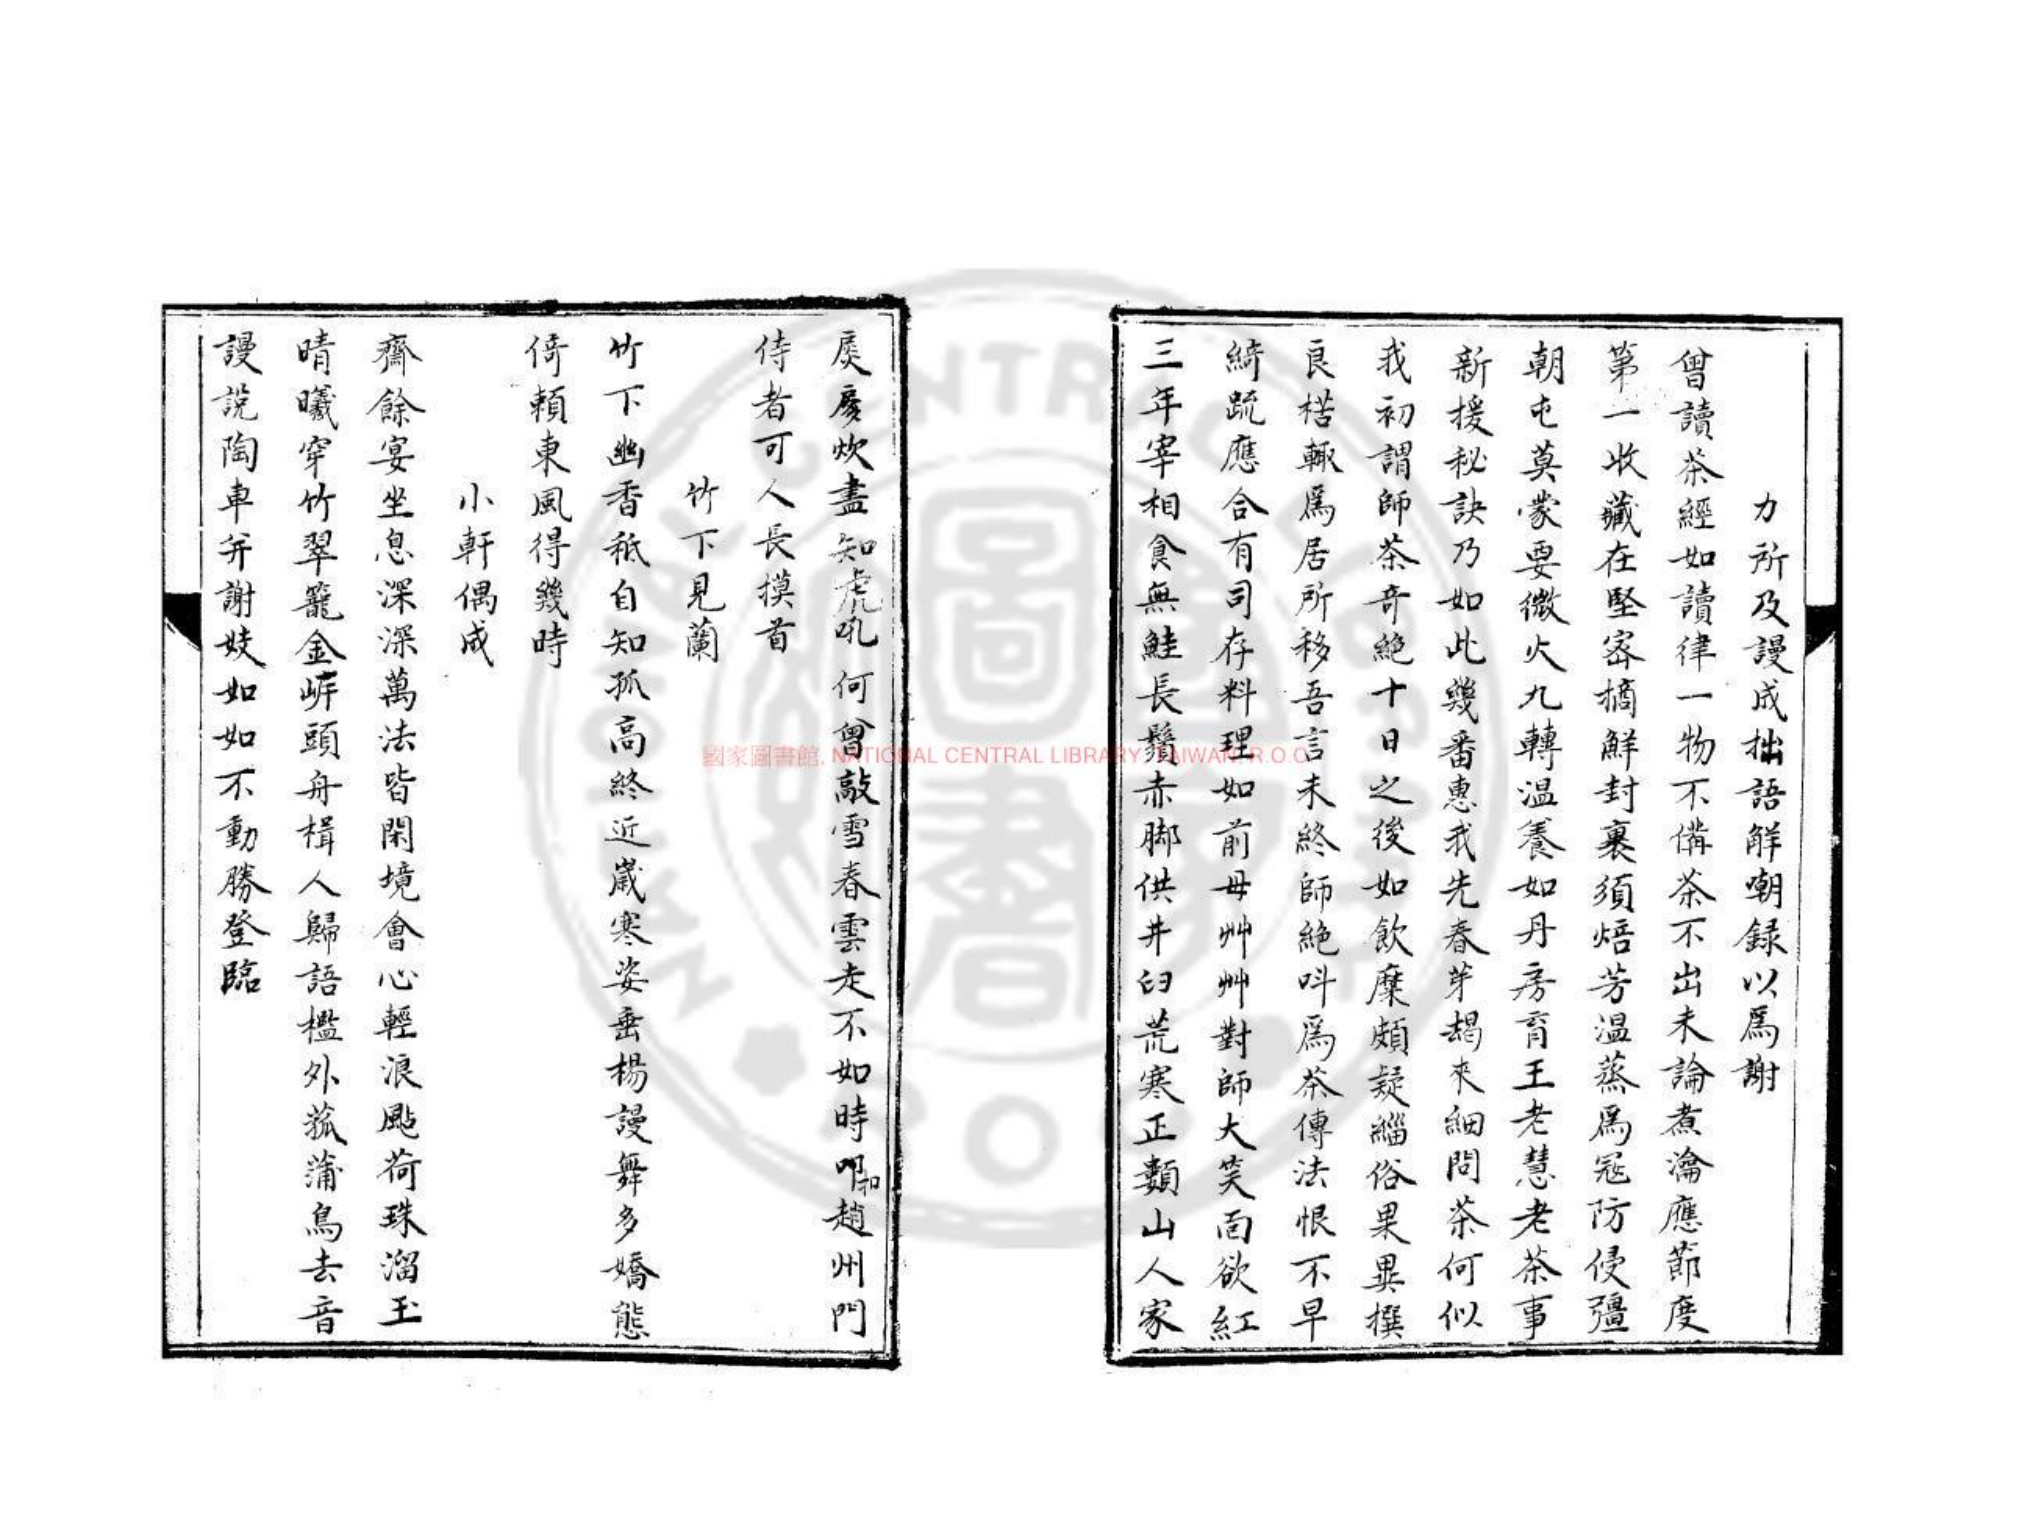 力所及謾成拙語解嘲録以爲謝
曾讀茶經如讀律一物不備茶不出未論煮瀹應節度
第一收藏在堅宻摘鮮封裹須焙芳温蒸爲冦防侵彊
朝屯莫蒙要微火九轉温養如丹房育王老慧老茶事
新援秘訣乃如此幾番惠我先春芽朅來細問茶何似
我初謂師茶奇絶十日之後如飲糜頗疑緇俗果異撰
良楛輙爲居所移吾言未終師絶呌爲茶傳法恨不早
綺疏應合有司存料理如前毋艸艸對師大笑面欲紅
三年宰相食無鮭長鬚赤脚供井臼荒寒正類山人家
扊扅炊盡知虎吼何曾敲雪春雲走不如時叩和趙州門
侍者可人長摸首
竹下見蘭
竹下幽香秖自知孤高終近嵗寒姿垂楊謾舞多嬌態
倚賴東風得幾時
小軒偶成
齋餘宴坐息深深萬法皆閑境會心輕浪颭荷珠溜玉
晴曦穿竹翠籠金㟁頭舟楫人歸語檻外菰蒲鳥去音
謾說陶車并謝妓如如不動勝登臨
國家圖書館, NATIONAL CENTRAL LIBRARY, TAIWAN, R.O.C